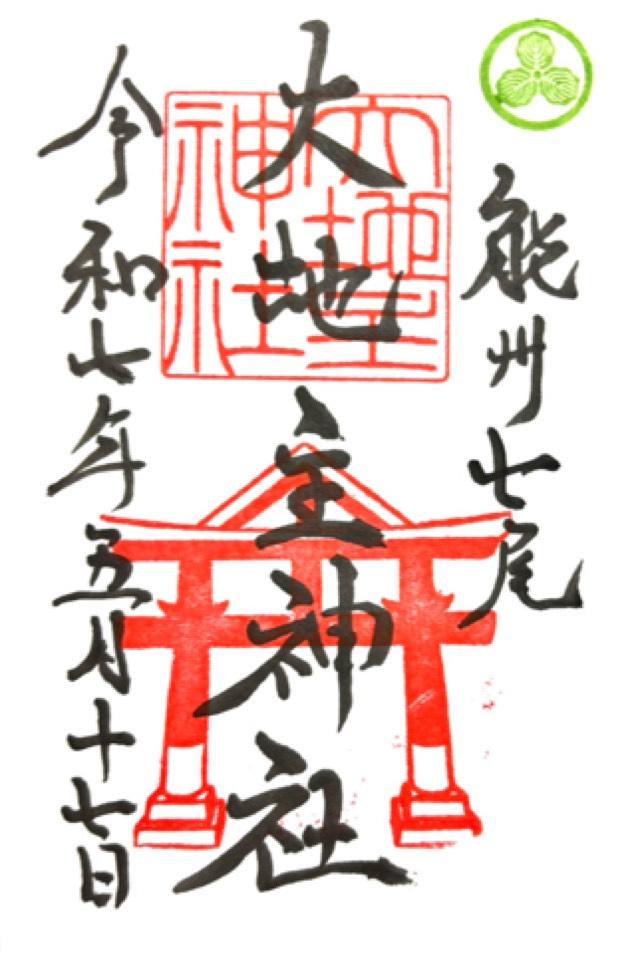 能州七尾
大地主神社
大地主神社
令和七年五月十七日